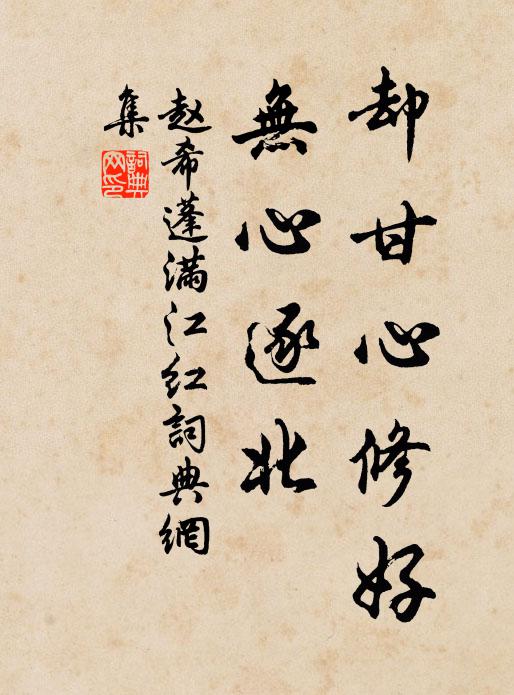 却甘心修好
無心逐北
赵希蓬满江红詞典網
集
詞典
网印